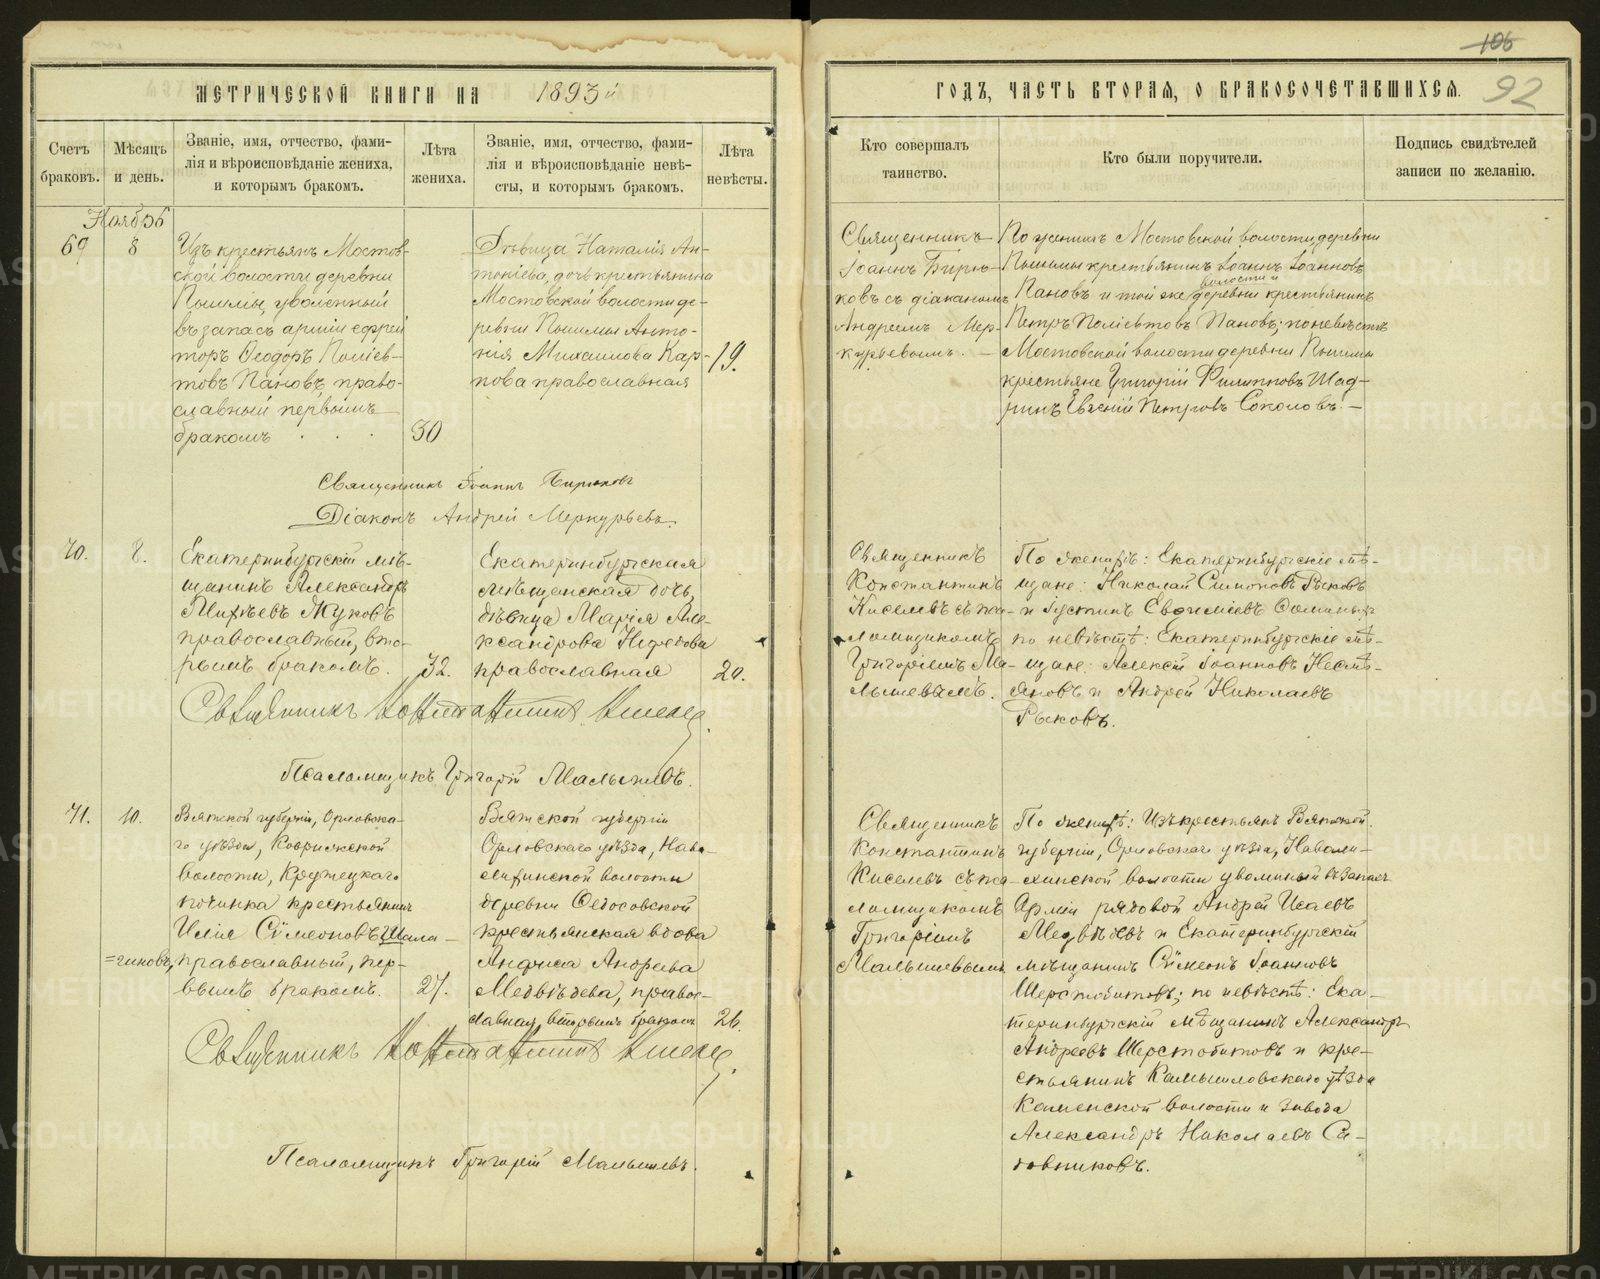 106
МЕТРИЧЕСКОЙ КНИГИ НА 1893й
ГОДЪ, ЧАСТЬ ВТОРАЯ, О БРАКОСОЧЕТАВШИХСЯ.
92
Счетъ браковъ.
Мѣсяцъ и день.
Званіе, имя, отчество, фами-
лія и вѣроисповѣданіе жениха,
и которымъ бракомъ.
Лѣта
жениха.
Званіе, имя, отчество, фами-
лія и вѣроисповѣданіе невѣ-
сты, и которымъ бракомъ.
Лѣта
невѣсты.
Кто совершалъ
таинство.
Кто были поручители.
Подпись свидѣтелей
записи по желанію.
Ноябрь
69
8
Изъ крестьянъ Мостов-
ской волости деревни
Пышмы, уволенный
въ запасъ арміи ефрей
торъ Ѳеодоръ Поліев-
товъ Пановъ право-
славный первымъ
бракомъ
30
Дѣвица Наталія Ан-
тоніева, дочь крестьянина
Мостовской волости де-
ревни Пышмы Анто-
нія Михаилова Кар-
пова православная
19.
Священникъ
Іоаннъ Бирю-
ковъ съ діакономъ
Андреемъ Мер-
курьевымъ.
По женихѣ Мостовской волости деревни
Пышмы крестьянинъ Іоаннъ Іоанновъ
Пановъ и той же волости и деревни крестьянинъ
Петръ Поліевтовъ Пановъ; по невѣстѣ
Мостовской волости деревни Пышмы
крестьяне Григорій Филипповъ Шад-
ринъ Евгеній Петровъ Соколовъ.
Священникъ Іоаннъ Бирюковъ
Діаконъ Андрей Меркурьевъ.
70.
8.
Екатеринбургскій мѣ-
щанинъ Александръ
Михѣевъ Жуковъ
православный, вто-
рымъ бракомъ.
32.
Екатеринбургская
мѣщанская дочь,
дѣвица Марія Але-
ксандрова Нефедова
православная
20.
Священникъ
Константинъ
Киселевъ съ пса-
ломщикомъ
Григоріемъ Ма-
лышевымъ.
По женихѣ: Екатеринбургскіе мѣ-
щане: Николай Симоновъ Рыковъ
и Іустинъ Евѳиміевъ
по невѣстѣ: Екатеринбургскіе мѣ-
щане: Алексѣй Іоанновъ Несмѣ-
яновъ и Андрей Николаевъ
Рыковъ.
Священникъ Константинъ Киселев.
Псаломщикъ Григорій Малышевъ.
71.
10.
Вятской губерніи, Орловска-
го уѣзда, Ковряжской
волости, Кружецкаго
починка крестьянинъ
Илія Сѵмеоновъ Шала-
=гиновъ, православный, пер-
вымъ бракомъ.
27.
Вятской губерніи
Орловскаго уѣзда, Нава-
лихинской волости
деревни Ѳедосовской
крестьянская вдова
Анфиса Андреева
Медвѣдева, правос-
лавная, вторымъ бракомъ
26.
Священникъ
Константинъ
Киселевъ съ пса-
ломщикомъ
Григоріемъ
Малышевымъ
По женихѣ: Изъ крестьянъ Вятской
губерніи, Орловскаго уѣзда, Навали-
хинской волости уволенный въ запасъ
Арміи рядовой Андрей Исаевъ
Медвѣдевъ и Екатеринбургскій
мѣщанинъ Сѵмеонъ Іоанновъ
Шерстобитовъ; по невѣстѣ: Ека-
теринбургскій мѣщанинъ Александръ
Андреевъ Шерстобитовъ и кре-
стьянинъ Камышловскаго уѣзда
Каменской волости и завода
Александръ Николаевъ Са-
довниковъ.
Священникъ Константинъ Киселев.
Псаломщикъ Григорій Малышевъ.
METRIKI.GASO-URAL.RU